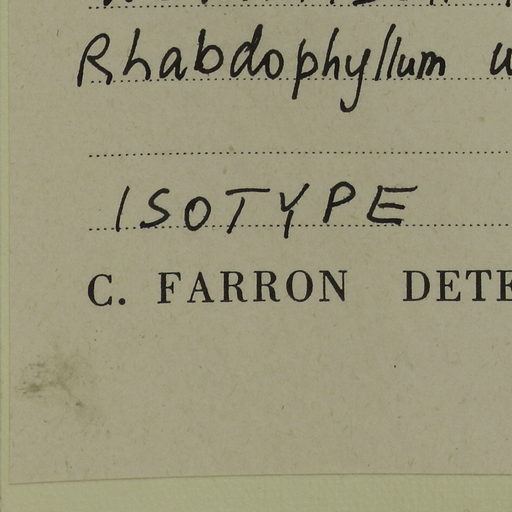 Rhabdophyllum
ISOTYPE
C. FARRON DETE